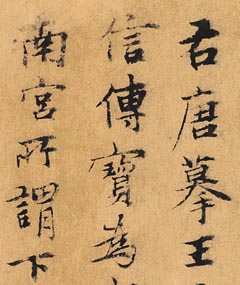 君唐摹王
信傳寶為
南宮所謂下